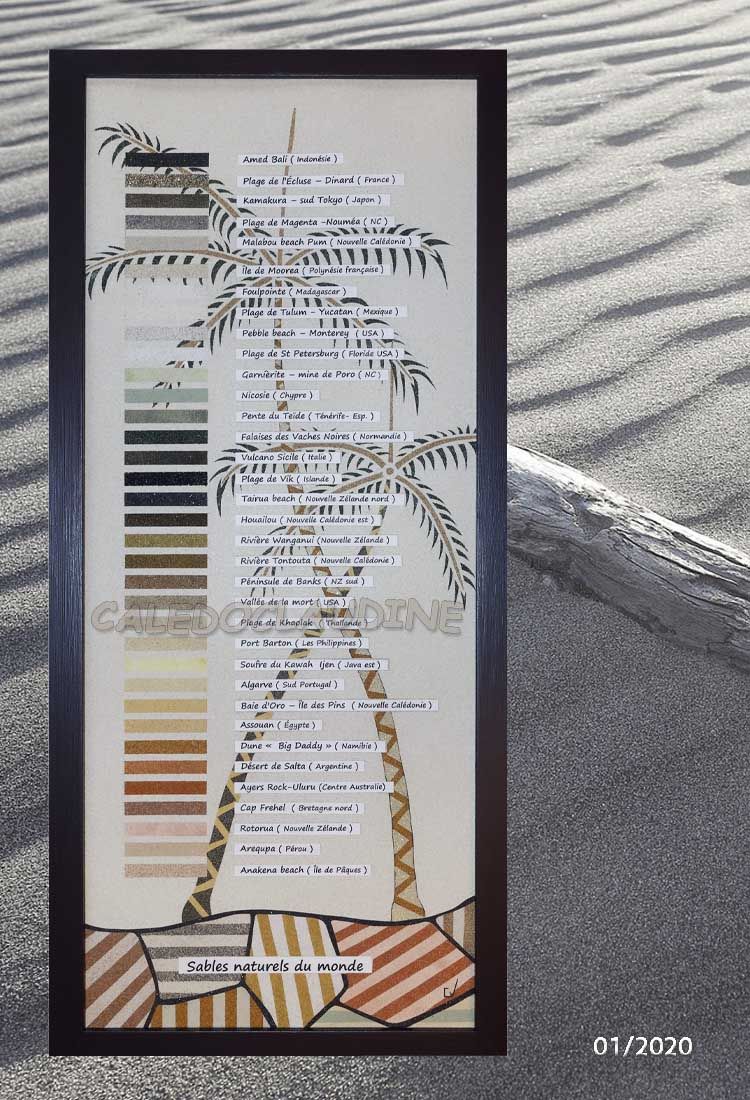 Amed Bali ( Indonésie )
Plage de l'Écluse – Dinard ( France )
Kamakura – sud Tokyo ( Japon )
Plage de Magenta -Nouméa ( NC )
Malabou beach Pum ( Nouvelle Calédonie )
Île de Moorea ( Polynésie française )
Foulpointe ( Madagascar )
Plage de Tulum - Yucatan ( Mexique )
Pebble beach – Monterey ( USA )
Plage de St Petersburg ( Floride USA )
Garniérite – mine de Poro ( NC )
Nicosie ( Chypre )
Pente du Teide ( Ténérife- Esp. )
Falaises des Vaches Noires ( Normandie )
Vulcano Sicile ( Italie )
Plage de Vik ( Islande )
Tairua beach ( Nouvelle Zélande nord )
Houaïlou ( Nouvelle Calédonie est )
Rivière Wanganui (Nouvelle Zélande )
Rivière Tontouta ( Nouvelle Calédonie )
Péninsule de Banks ( NZ sud )
Vallée de la mort ( USA )
CALEDOCLAUDINE
Plage de Khaolak ( Thaïlande )
Port Barton ( Les Philippines )
Soufre du Kawah Ijen ( Java est )
Algarve ( Sud Portugal )
Baie d'Oro – Île des Pins ( Nouvelle Calédonie )
Assouan ( Égypte )
Dune « Big Daddy » ( Namibie )
Désert de Salta ( Argentine )
Ayers Rock-Uluru (Centre Australie)
Cap Frehel ( Bretagne nord )
Rotorua ( Nouvelle Zélande )
Arequpa ( Pérou )
Anakena beach ( Île de Pâques )
Sables naturels du monde
01/2020